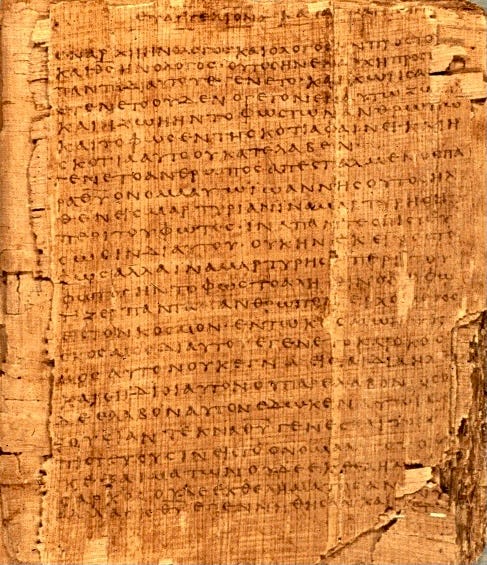 ΕΥΑΓΓΕΛΙΟΝ ΚΑΤΑ
ΕΝΑΡΧΗΗΝΟΛΟΓΟΣΚΑΙΟΛΟΓΟΣΗΝΠΡΟΣΤΟ
ΚΑΙΘΣΗΝΟΛΟΓΟΣΟΥΤΟΣΗΝΕΝΑΡΧΗΠΡΟΣ
ΠΑΝΤΑΔΙΑΥΤΟΥΕΓΕΝΕΤΟΚΑΙΧΩΡΙΣΑ
ΕΓΕΝΕΤΟΟΥΔΕΝΟΓΕΓΟΝΕΝΕΝΑΥΤΩΖΩ
ΚΑΙΗΖΩΗΗΝΤΟΦΩΣΤΩΝΑΝΘΡΩΠΩΝ
ΚΑΙΤΟΦΩΣΕΝΤΗΣΚΟΤΙΑΦΑΙΝΕΙΚΑΙΗ
ΣΚΟΤΙΑΑΥΤΟΟΥΚΑΤΕΛΑΒΕΝ
ΓΕΝΕΤΟΑΝΘΡΩΠΟΣΑΠΕΣΤΑΛΜΕΝΟΣΠΑ
ΡΑΘΥΟΝΟΜΑΑΥΤΩΙΩΑΝΝΗΣΟΥΤΟΣΗΛ
ΘΕΝΕΙΣΜΑΡΤΥΡΙΑΝΙΝΑΜΑΡΤΥΡΗΣΗ
ΠΕΡΙΤΟΥΦΩΤΟΣΙΝΑΠΑΝΤΕΣΠΙΣΤΕΥ
ΣΩΣΙΝΔΙΑΥΤΟΥΟΥΚΗΝΕΚΕΙΝΟΣΤΟ
ΦΩΣΑΛΛΑΙΝΑΜΑΡΤΥΡΗΣΗΠΕΡΙΤΟΥ
ΦΩΤΟΣΗΝΤΟΦΩΣΤΟΑΛΗΘΙΝΟΝΟΦΩ
ΤΙΖΕΙΠΑΝΤΑΑΝΘΡΩΠΟΝΕΡΧΟΜΕΝΟΝ
ΕΙΣΤΟΝΚΟΣΜΟΝΕΝΤΩΚΟΣΜΩΗΝΚΑΙΟ
ΚΟΣΜΟΣΔΙΑΥΤΟΥΕΓΕΝΕΤΟΚΑΙΟΚΟΣ
ΜΟΣΑΥΤΟΝΟΥΚΕΓΝΩΕΙΣΤΑΙΔΙΑΗΛ
ΚΑΙΟΙΙΔΙΟΙΑΥΤΟΝΟΥΠΑΡΕΛΑΒΟΝΟΣΟΙ
ΔΕΕΛΑΒΟΝΑΥΤΟΝΕΔΩΚΕΝΑΥΤΟΙΣΕ
ΞΟΥΣΙΑΝΤΕΚΝΑΘΥΓΕΝΕΣΘΑΙΤΟΙΣ
ΠΙΣΤΕΥΟΥΣΙΝΕΙΣΤΟΟΝΟΜΑΑΥΤΟΥΟΙ
ΟΥΚΕΞΑΙΜΑΤΩΝΟΥΔΕΕΚΘΕΛΗΜΑ
ΣΑΡΚΟΣΟΥΔΕΕΚΘΕΛΗΜΑΤΟΣΑΝ
ΑΛΛΑΕΚΘΥΕΓΕΝΝΗΘΗΣΑΝΚΑΙ